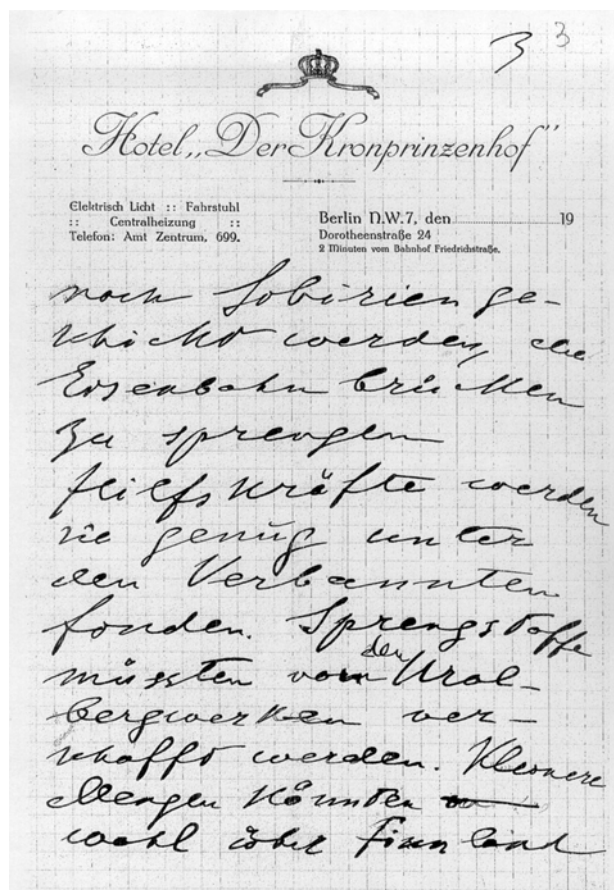 3 3
Hotel „Der Kronprinzenhof"
Elektrisch Licht :: Fahrstuhl
:: Centralheizung ::
Telefon: Amt Zentrum, 699.
Berlin N.W.7, den 19
Dorotheenstraße 24
2 Minuten vom Bahnhof Friedrichstraße.
nach Sibirien ge-
schickt werden, die
Eisenbahnbrücken
zu sprengen
Hilfskräfte werden
sie genug unter
den Verbannten
finden. Sprengstoffe
müssten von den Ural-
bergwerken ver-
schafft werden. Kleinere
Mengen könnten
wohl über Finnland